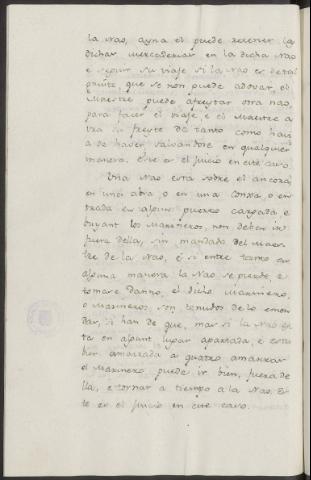 la Nao, ayna el puede retener las
dichas mercaderias en la dicha Nao
e seguir su viaje si la Nao es de tal
guisa, que se non puede adovar, el
Maestre puede afreytar otra nao,
para facer el viaje, e el Maestre a
vra su freyte de tanto como havi
a de haver salvandose en qualquier
manera. Este es el juicio en este caso.
Una Nao esta sobre el ancora,
en una abra, o en una Concha, o en
trada en algun puerto cargada, e
buyant los Marineros, non deben ir
fuera della, sin mandado del Maes-
tre de la Nao, e si entre tanto en
alguna manera la Nao se pierde, e
tomare danno, el dicho Marinero,
o Marineros, son tenudos de lo emen
dar, si han de que, mas si la Nao es
ta en algunt lugar apartada, e estu
bier amarrada a quatro amarras
el Marinero puede ir bien, fuera de
lla, e tornar a tiempo a la Nao. Es
te es el juicio en este caso.